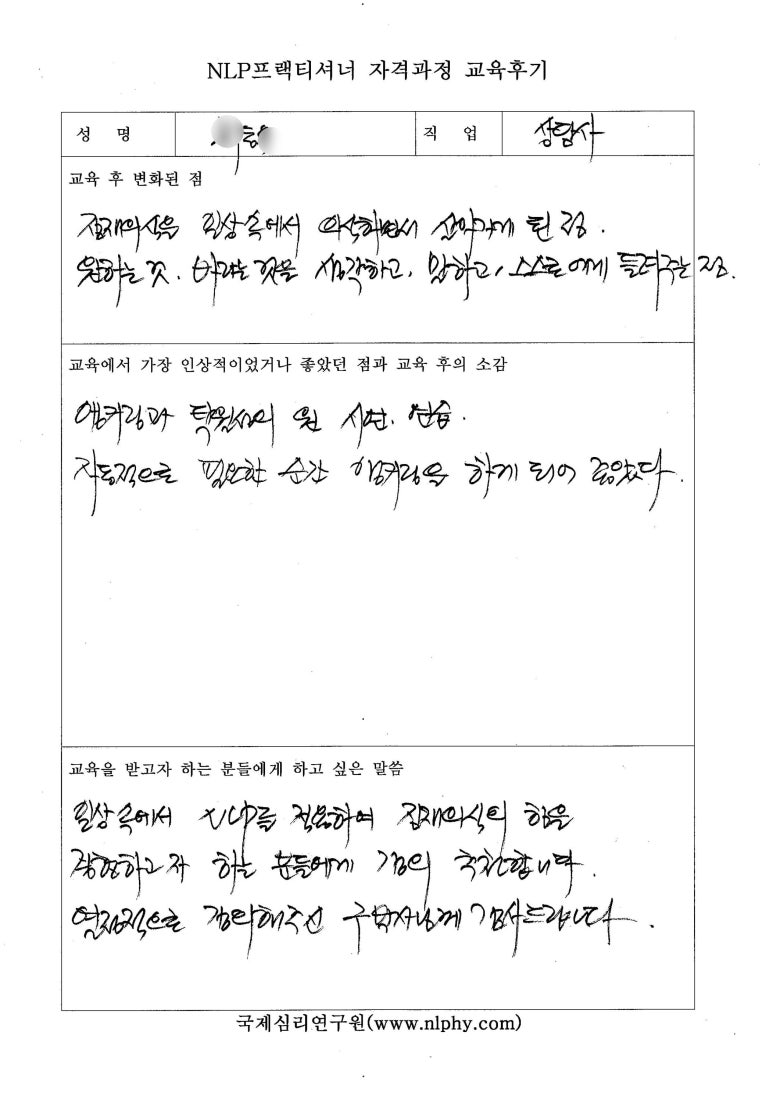 NLP프랙티셔너 자격과정 교육후기
성 명 직 업 상담사
교육 후 변화된 점
잠재의식을 일상 속에서 의식하면서 살아가게 된 점.
원하는 것. 바라는 것을 생각하고, 말하고, 스스로에게 들려주는 점.
교육에서 가장 인상적이었거나 좋았던 점과 교육 후의 소감
앵커링과 탁월성의 원 시연. 연습.
자동적으로 필요한 순간 앵커링을 하게 되어 좋았다.
교육을 받고자 하는 분들에게 하고 싶은 말씀
일상 속에서 NLP를 적용하여 잠재의식의 힘을
경험하고자 하는 분들에게 강의 추천합니다.
열정적으로 강의해주신 구박사님께 감사드립니다.
국제심리연구원(www.nlphy.com)